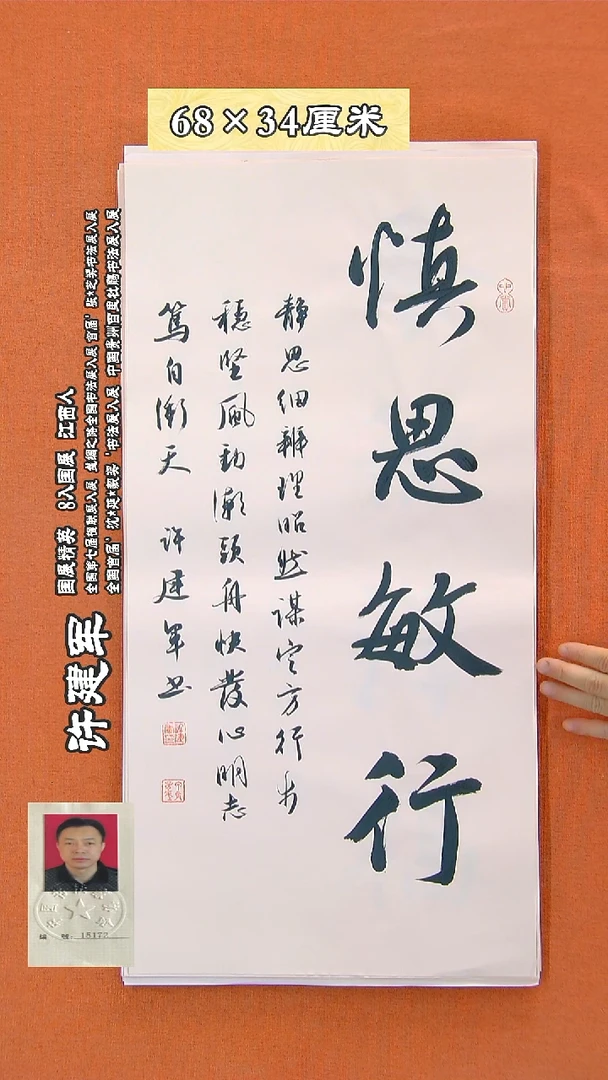 68×34厘米
慎思敏行
静思细辨理昭然谋定方行步
稳坚风劲潮头舟快发心明志
笃自冲天 许建军书
许建军
国展精英 8入国展 江西人
全国第七届楹联展入展
全国首届
书法展入展 中国贵州百里杜鹃书法展入展
编号:15177